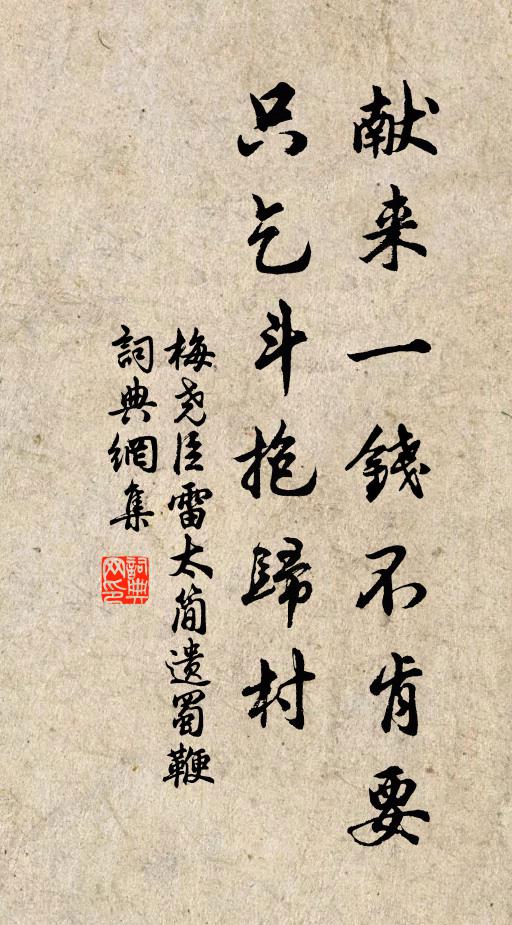 献来一錢不肯要
只乞斗抱歸村
梅尧臣雷太简遗蜀鞭
詞典網集
詞典网印